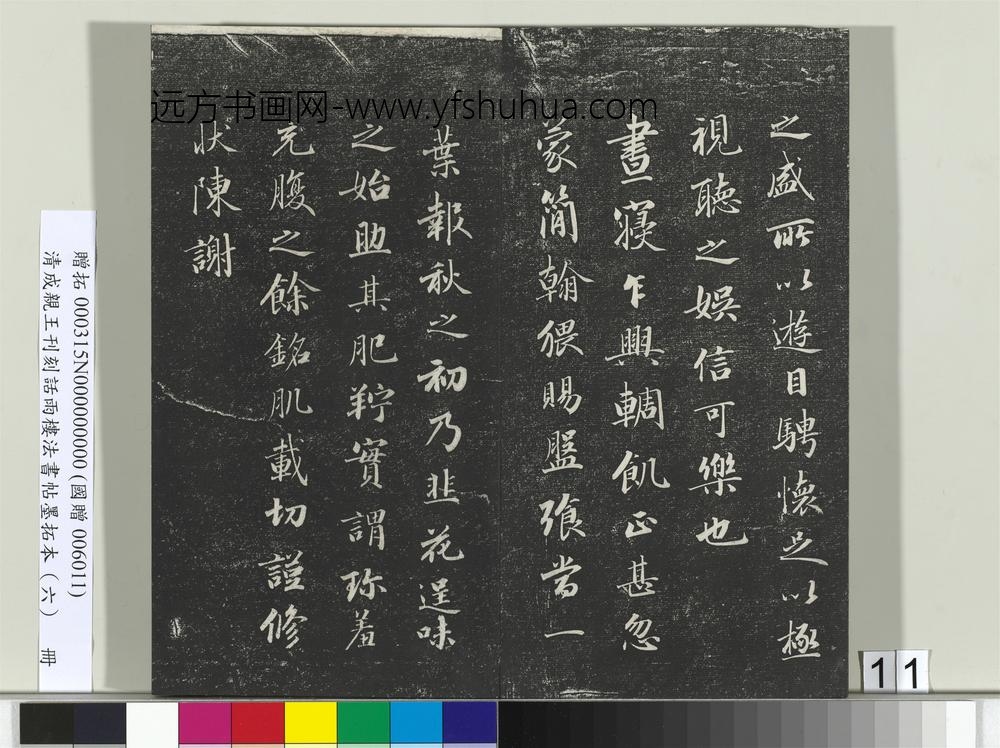 远方书画网-www.yfshuhua.com
之盛所以遊目騁懷足以極
視聽之娛信可樂也
晝寢乍興輖飢正甚忽
蒙簡翰猥賜盤飡當一
葉報秋之初乃韭花逞味
之始助其肥羜實謂珎羞
充腹之餘銘肌載切謹修
狀陳謝
贈拓 000315N000000000 (國贈 006011)
清成親王刊刻話雨樓法書帖墨拓本(六) 冊
11